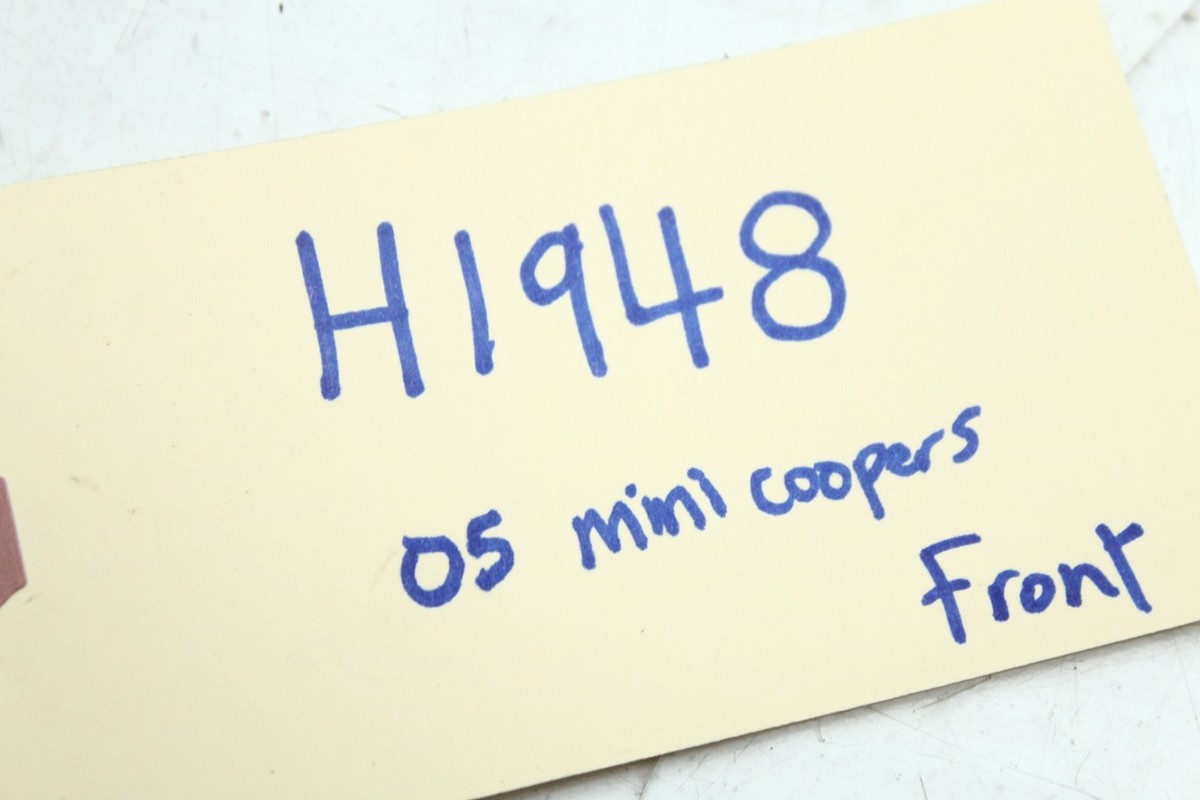 H1948
05 mini coopers
Front